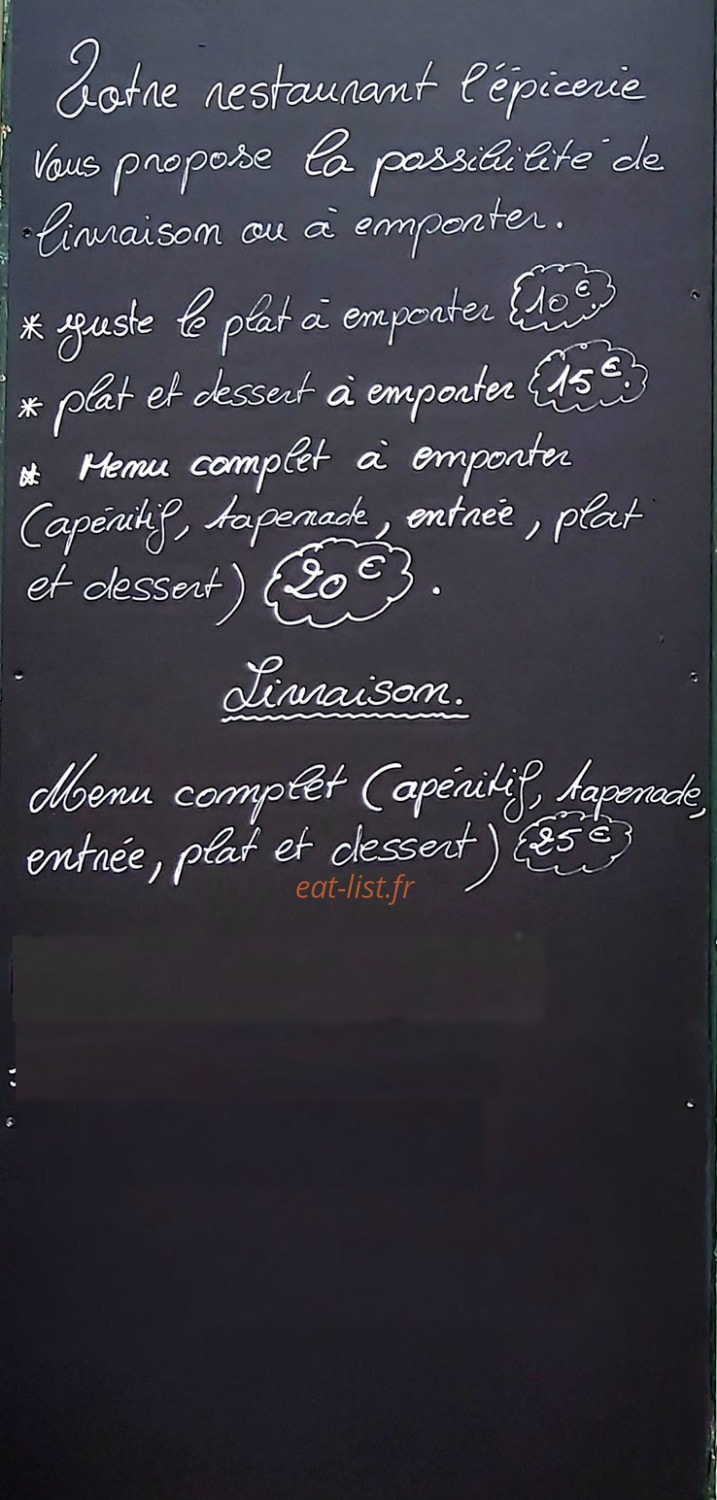 Votre restaurant l'épicerie
Vous propose la possibilité de
livraison ou à emporter.
* juste le plat à emporter 10€.
* plat et dessert à emporter 15€.
* Menu complet à emporter
(apéritif, tapenade, entrée, plat
et dessert) 20€.
Livraison.
Menu complet (apéritif, tapenade,
entrée, plat et dessert) 25€
eat-list.fr